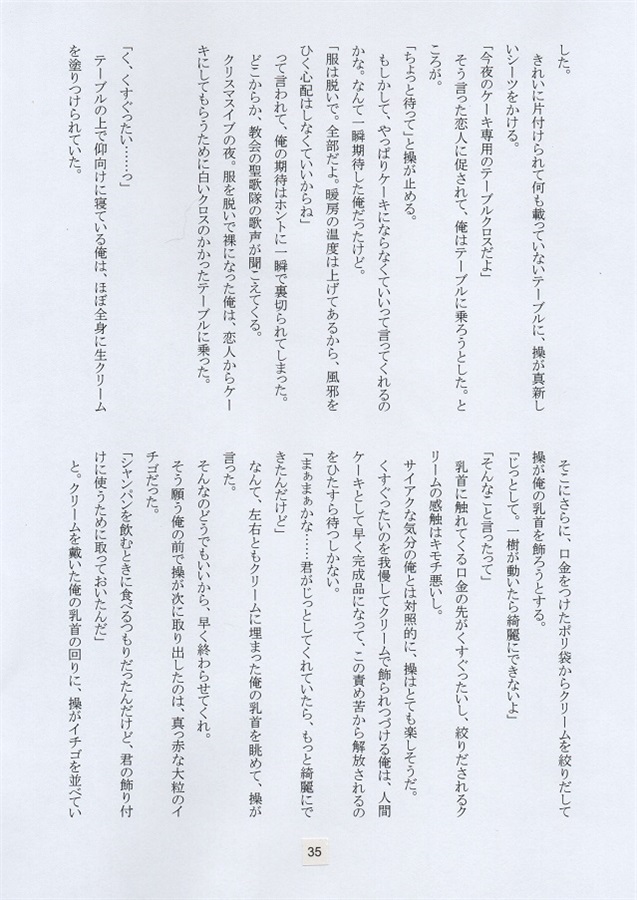 した。
　きれいに片付けられて何も載っていないテーブルに、操が真新し
いシーツをかける。
「今夜のケーキ専用のテーブルクロスだよ」
　そう言った恋人に促されて、俺はテーブルに乗ろうとした。と
ころが。
「ちょっと待って」と操が止める。
　もしかして、やっぱりケーキにならなくていいって言ってくれるの
かな。なんて一瞬期待した俺だったけど。
「服は脱いで。全部だよ。暖房の温度は上げてあるから、風邪を
ひく心配はしなくていいからね」
　って言われて、俺の期待はホントに一瞬で裏切られてしまった。
　どこからか、教会の聖歌隊の歌声が聞こえてくる。
　クリスマスイブの夜。服を脱いで裸になった俺は、恋人からケー
キにしてもらうために白いクロスのかかったテーブルに乗った。
「く、くすぐったい……っ」
　テーブルの上で仰向けに寝ている俺は、ほぼ全身に生クリーム
を塗りつけられていた。
　そこにさらに、口金をつけたポリ袋からクリームを絞りだして
操が俺の乳首を飾ろうとする。
「じっとして。一樹が動いたら綺麗にできないよ」
「そんなこと言ったって」
　乳首に触れてくる口金の先がくすぐったいし、絞りだされるク
リームの感触はキモチ悪いし。
　サイアクな気分の俺とは対照的に、操はとても楽しそうだ。
　くすぐったいのを我慢してクリームで飾られつづける俺は、人間
ケーキとして早く完成品になって、この責め苦から解放されるの
をひたすら待つしかない。
「まぁまぁかな……君がじっとしてくれていたら、もっと綺麗にで
きたんだけど」
　なんて、左右ともクリームに埋まった俺の乳首を眺めて、操が
言った。
　そんなのどうでもいいから、早く終わらせてくれ。
　そう願う俺の前で操が次に取り出したのは、真っ赤な大粒のイ
チゴだった。
「シャンパンを飲むときに食べるつもりだったんだけど、君の飾り付
けに使うために取っておいたんだ」
　と。クリームを戴いた俺の乳首の回りに、操がイチゴを並べてい
35